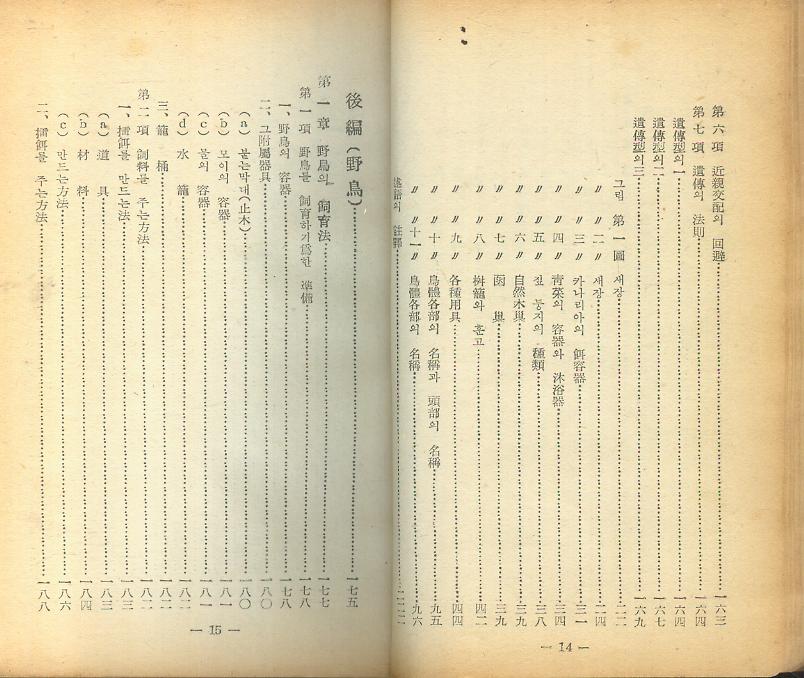 第六項 近親交配의 回避 一六三
第七項 遺傳의 法則 一六四
遺傳型의 一 一六四
遺傳型의 二 一六七
遺傳型의 三 一六九
그림 第一圖 새장 二二
〃 二 〃 새장 二四
〃 三 〃 카나리아의 餌容器 三一
〃 四 〃 靑菜의 容器와 沐浴器 三四
〃 五 〃 짚 둥지의 種類 三八
〃 六 〃 自然木巢 三九
〃 七 〃 函 巢 三九
〃 八 〃 桝籠와 훈고 四二
〃 九 〃 各種用具 四四
〃 十 〃 鳥體各部의 名稱과 頭部의 名稱 九五
〃 十一 〃 鳥體各部의 名稱 九六
의 註釋
— 14 —
後編(野鳥) 一七五
第一章 野鳥의 飼育法 一七七
第一項 野鳥를 飼育하기爲한 準備 一七八
一、野鳥의 容器 一七八
二、그附屬器具 一八〇
(a) 붙는막대(止木) 一八〇
(b) 모이의 容器 一八一
(c) 물의 容器 一八一
(d) 水 籠 一八二
三、籠 桶 一八二
第二項 飼料를 주는方法 一八二
一、擂餌를 만드는法 一八三
(a) 道 具 一八三
(b) 材 料 一八四
(c) 만드는方法 一八六
二、擂餌를 주는方法 一八八
— 15 —